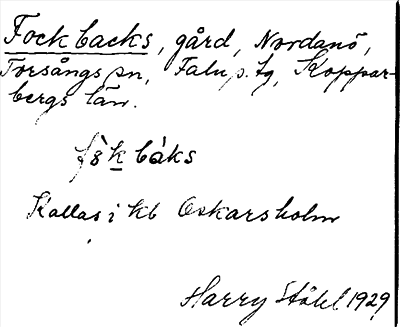 Fockbacks, gård, Nordanö,
Torsångs sn, Falu s. tg, Koppar-
bergs län.
fòkbàks
Kallas i kb Oskarsholm
Harry Ståhl 1929